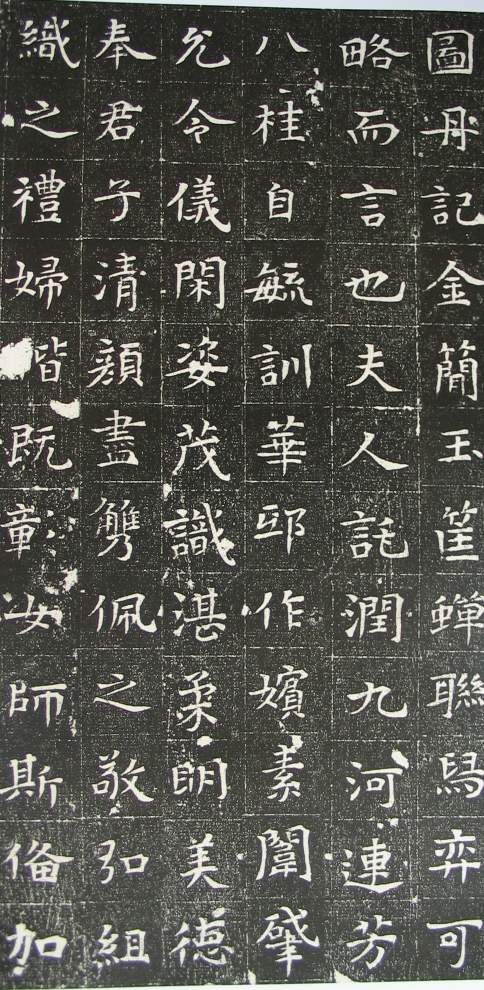 圖丹記金簡玉筐蟬聯舄弈可
略而言也夫人託潤九河連芳
八桂自毓訓華邸作嬪素闈肇
允令儀閑姿茂識湛柔明美德
奉君子清顔盡佩之敬弘組
織之禮婦既彰女師斯俻加